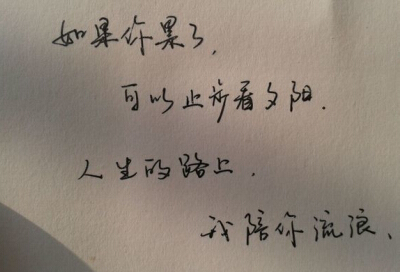 如果你累了,
可以止步看夕阳.
人生的路上.
我陪你流浪、